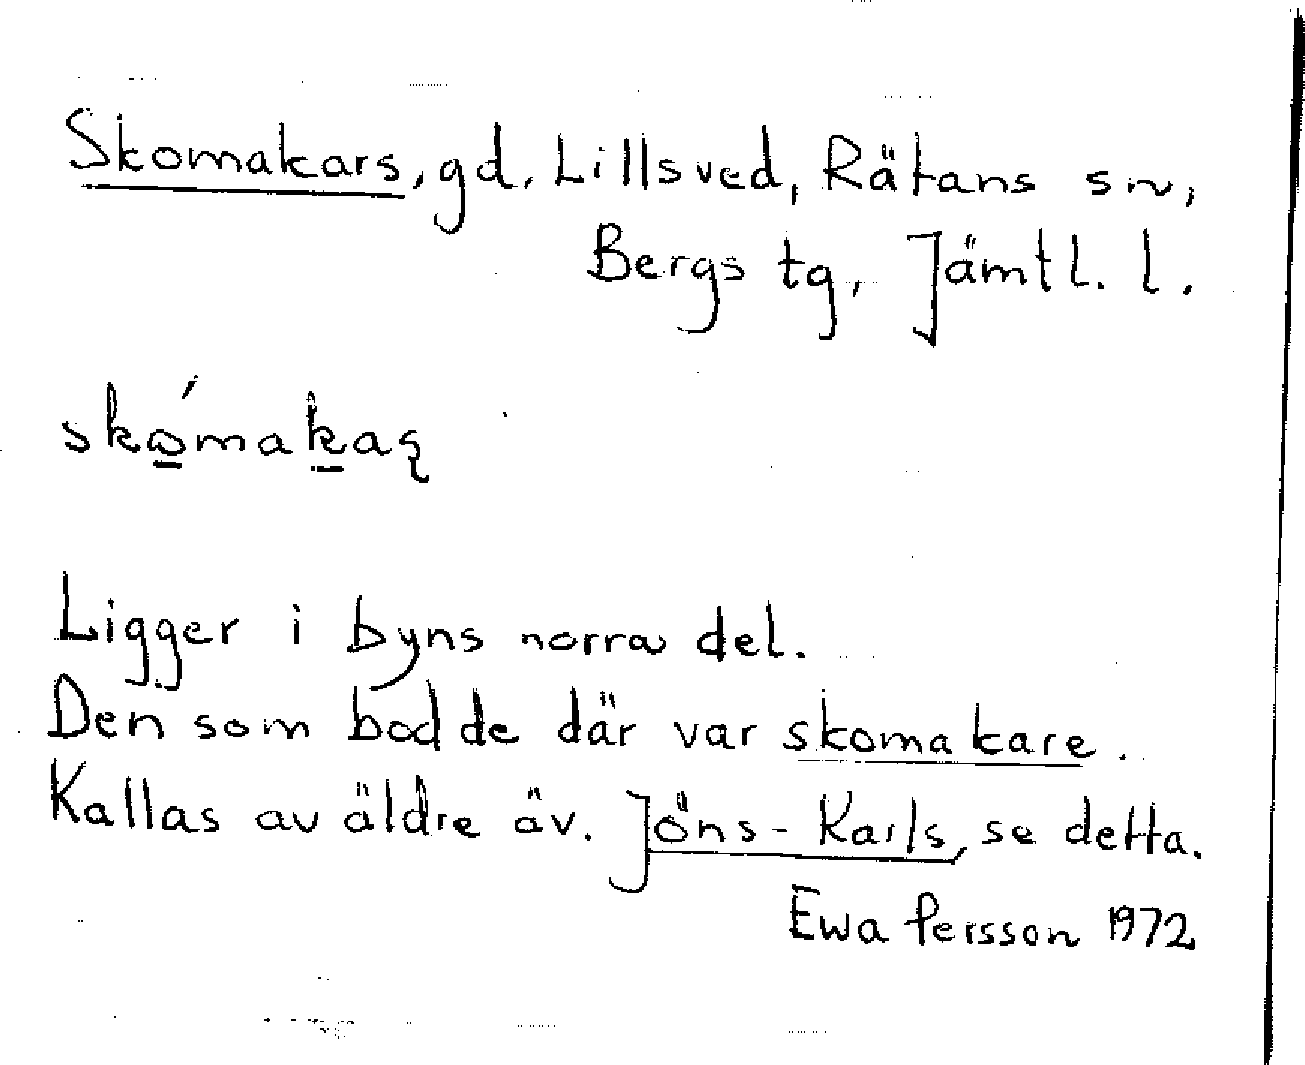 Skomakars, gd. Lillsved, Rätans sn,
Bergs tg, Jämtl. l.
skώ̲mak̲aʂ
Ligger i byns norra del.
Den som bodde där var skomakare.
Kallas av äldre äv. Jöns-Karls, se detta.
Ewa Persson 1972